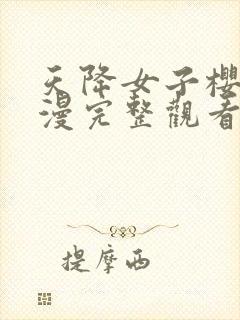 天降女子櫻
漫完整觀看
提摩西